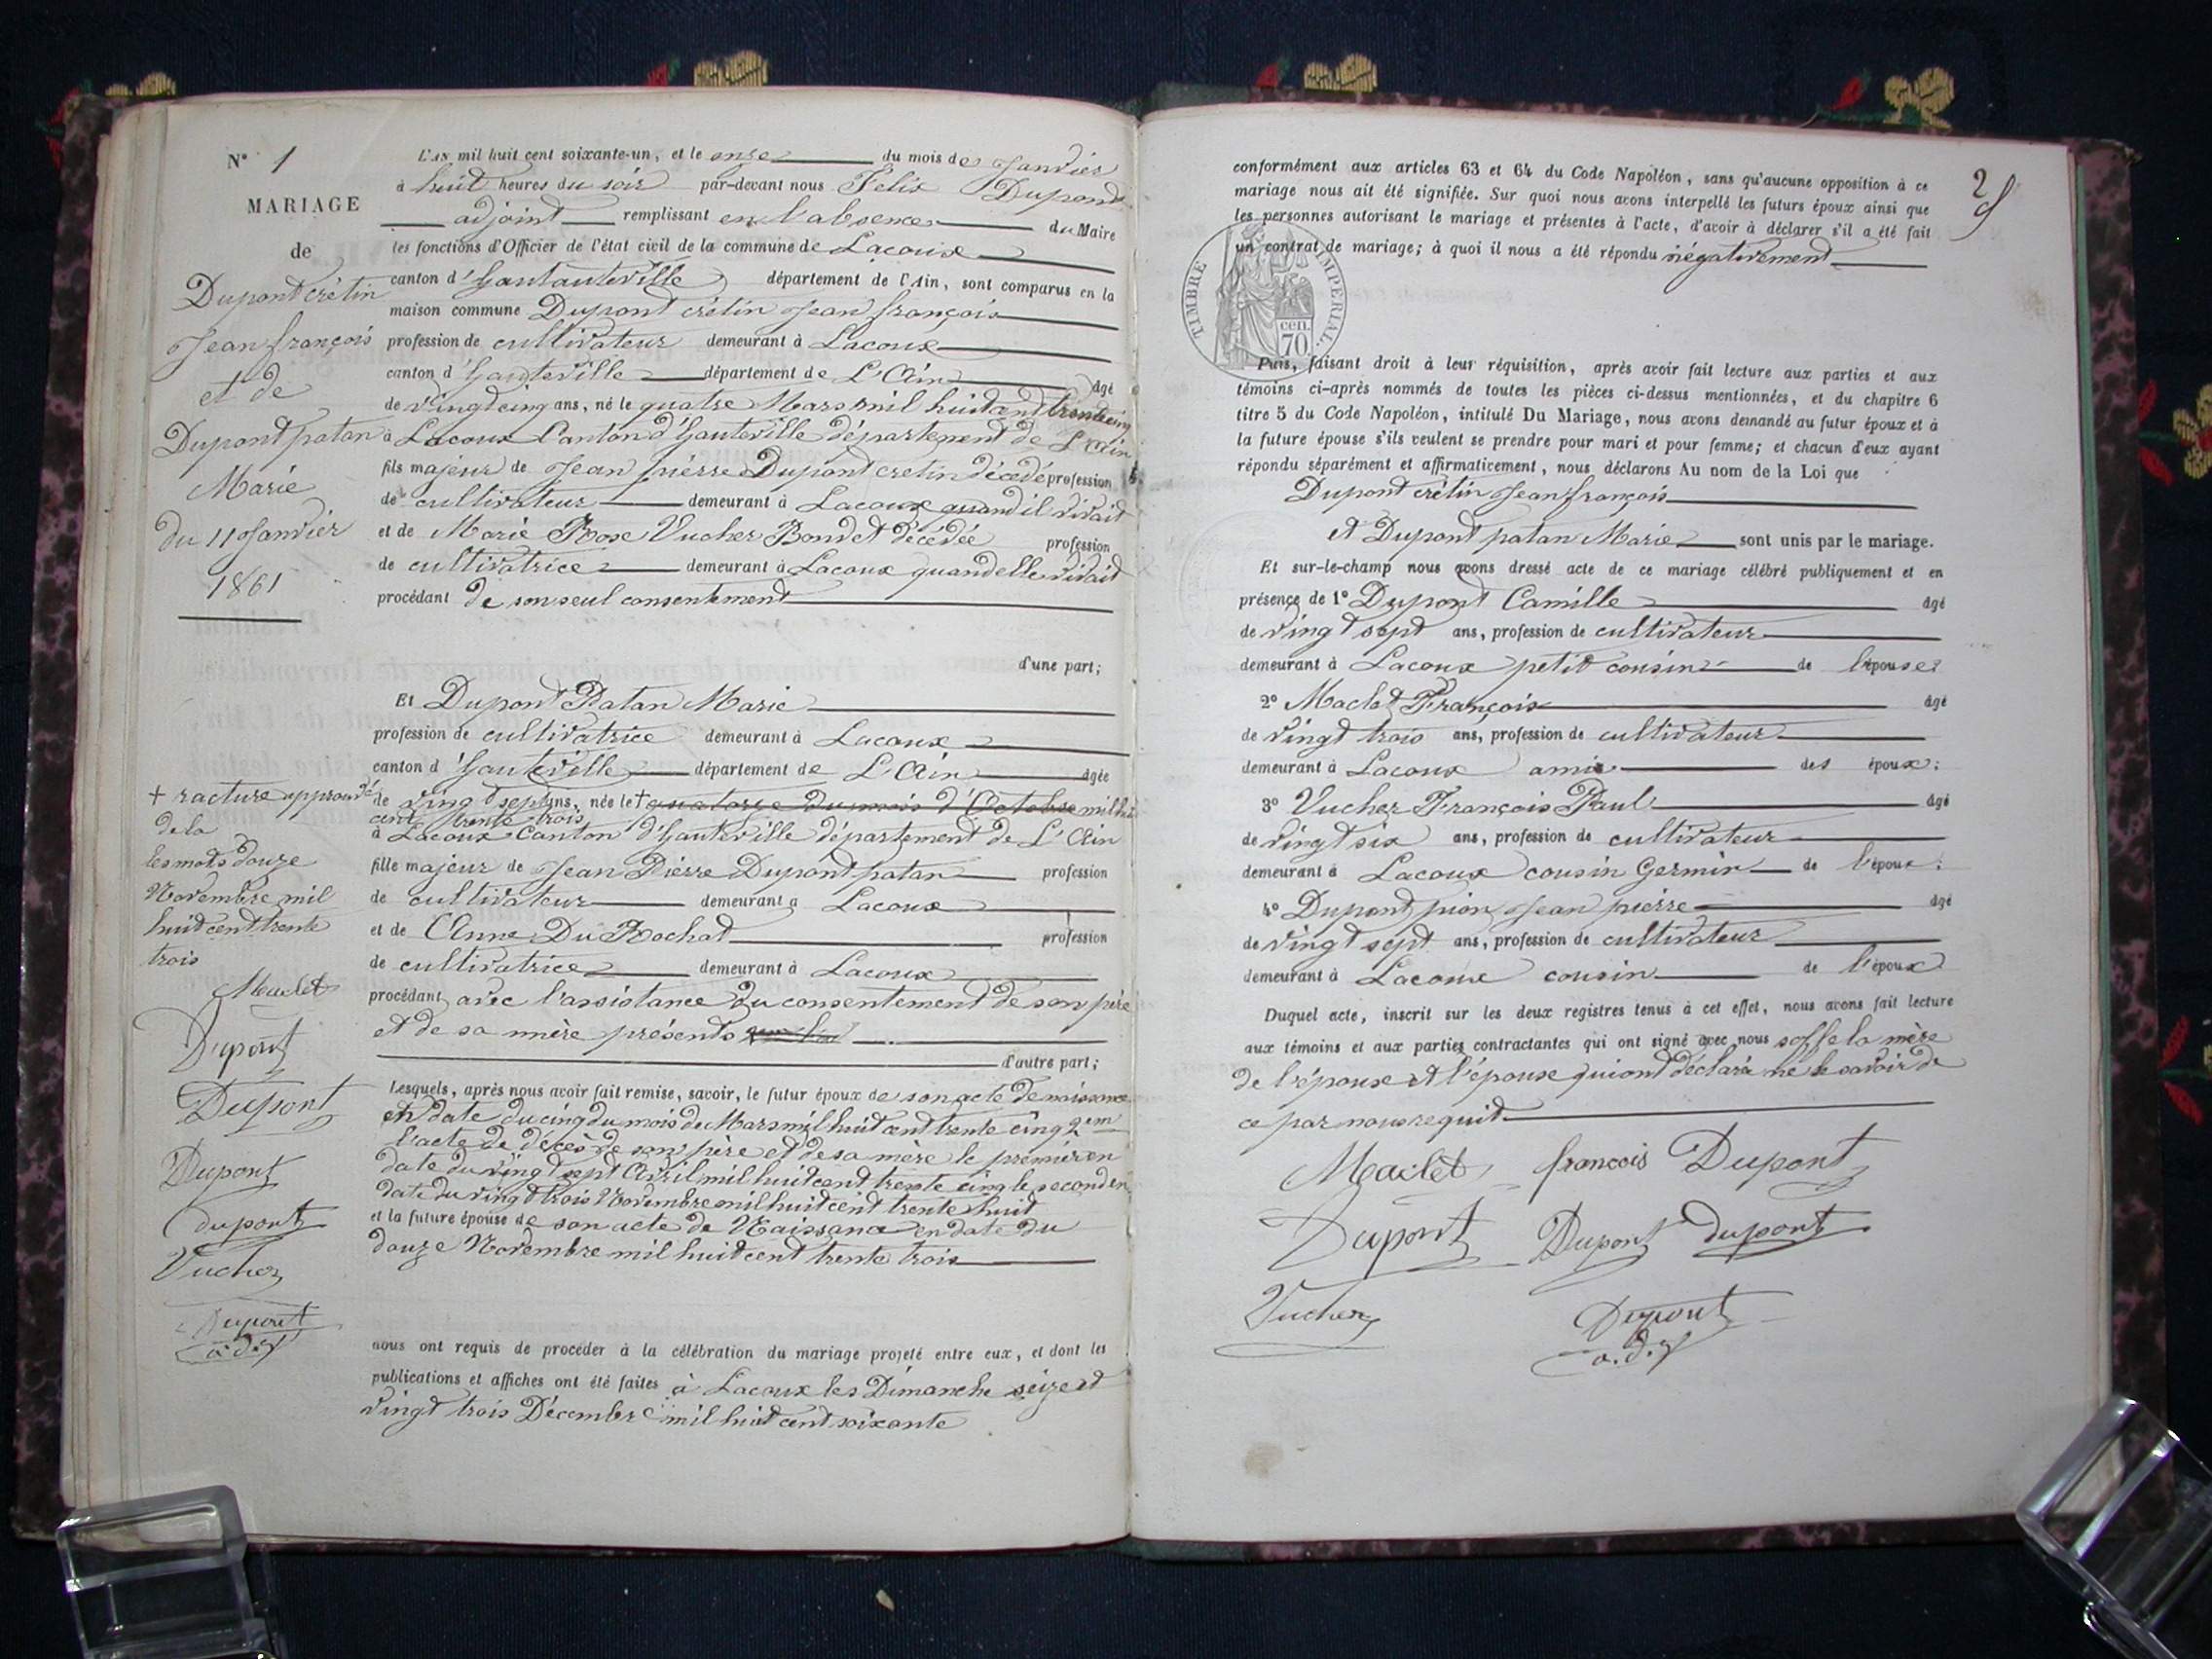 N° 1
MARIAGE
de
Dupont crétin
Jean françois
et de
Dupont patan
Marie
du 11 Janvier
1861
L'AN mil huit cent soixante-un, et le onze du mois de Janvier
à huit heures du soir par-devant nous Félix Dupont
adjoint remplissant en l'absence du Maire
les fonctions d'Officier de l'état civil de la commune de Lacoux
canton d'hautauteville département de l'Ain, sont comparus en la
maison commune Dupont crétin Jean françois
profession de cultivateur demeurant à Lacoux
canton d'hauteville département de L'Ain âgé
de vingt cinq ans, né le quatre Mars mil huit cent trente cinq
à Lacoux Canton d'hauteville département de L'Ain
fils majeur de Jean pierre Dupont cretin décédé profession
de cultivateur demeurant à Lacoux quand il vivait
et de Marie Rose Vucher Bondet décédée profession
de cultivatrice demeurant à Lacoux quand elle vivait
procédant de son seul consentement
d'une part;
Et Dupont Patan Marie
profession de cultivatrice demeurant à Lacoux
canton d'hauteville département de L'Ain âgée
de vingt sept ans, née le + quatorze du mois d'Octobre mil huit
cent trente trois
à Lacoux Canton d'hauteville département de L'Ain
fille majeur de Jean Pierre Dupont patan profession
de cultivateur demeurant à Lacoux
et de Anne Du Rochat profession
de cultivatrice demeurant à Lacoux
procédant avec l'assistance du consentement de son père
et de sa mère présents
d'autre part;
Lesquels, après nous avoir fait remise, savoir, le futur époux de son acte de naissance
en date du cinq du mois de Mars mil huit cent trente cinq 2em
l'acte de décès de son père et de sa mère le premier en
date du vingt sept Avril mil huit cent trente cinq le second en
date du vingt trois Novembre mil huit cent trente huit
et la future épouse de son acte de Naissance en date du
douze Novembre mil huit cent trente trois
nous ont requis de procéder à la célébration du mariage projeté entre eux, et dont les
publications et affiches ont été faites à Lacoux les Dimanche seize et
vingt trois Décembre mil huit cent soixante
+ racture approuvé
de la
les mots douze
Novembre mil
huit cent trente
trois
Maclet
Dupont
Dupont
Dupont
dupont
Vucher
Dupont
a.d.j
2
conformément aux articles 63 et 64 du Code Napoléon, sans qu'aucune opposition à ce
mariage nous ait été signifiée. Sur quoi nous avons interpellé les futurs époux ainsi que
les personnes autorisant le mariage et présentes à l'acte, d'avoir à déclarer s'il a été fait
un contrat de mariage; à quoi il nous a été répondu négativement
TIMBRE IMPERIAL
70 cen.
Puis, faisant droit à leur réquisition, après avoir fait lecture aux parties et aux
témoins ci-après nommés de toutes les pièces ci-dessus mentionnées, et du chapitre 6
titre 5 du Code Napoléon, intitulé Du Mariage, nous avons demandé au futur époux et à
la future épouse s'ils veulent se prendre pour mari et pour femme; et chacun d'eux ayant
répondu séparément et affirmativement, nous déclarons Au nom de la Loi que
Dupont crétin Jean françois
et Dupont patan Marie sont unis par le mariage.
Et sur-le-champ nous avons dressé acte de ce mariage célébré publiquement et en
présence de 1° Dupont Camille âgé
de vingt sept ans, profession de cultivateur
demeurant à Lacoux petit cousin de l'épouse;
2° Maclet François âgé
de vingt trois ans, profession de cultivateur
demeurant à Lacoux amis des époux;
3° Vucher François Paul âgé
de vingt six ans, profession de cultivateur
demeurant à Lacoux cousin Germin de l'époux;
4° Dupont pion Jean pierre âgé
de vingt sept ans, profession de cultivateur
demeurant à Lacoux cousin de l'époux
Duquel acte, inscrit sur les deux registres tenus à cet effet, nous avons fait lecture
aux témoins et aux parties contractantes qui ont signé avec nous soffe la mère
de l'épouse et l'épouse qui ont déclaré ne le savoir de
ce par nous requit
Maclet françois Dupont
Dupont Dupont dupont
Vucher Dupont
a.d.j